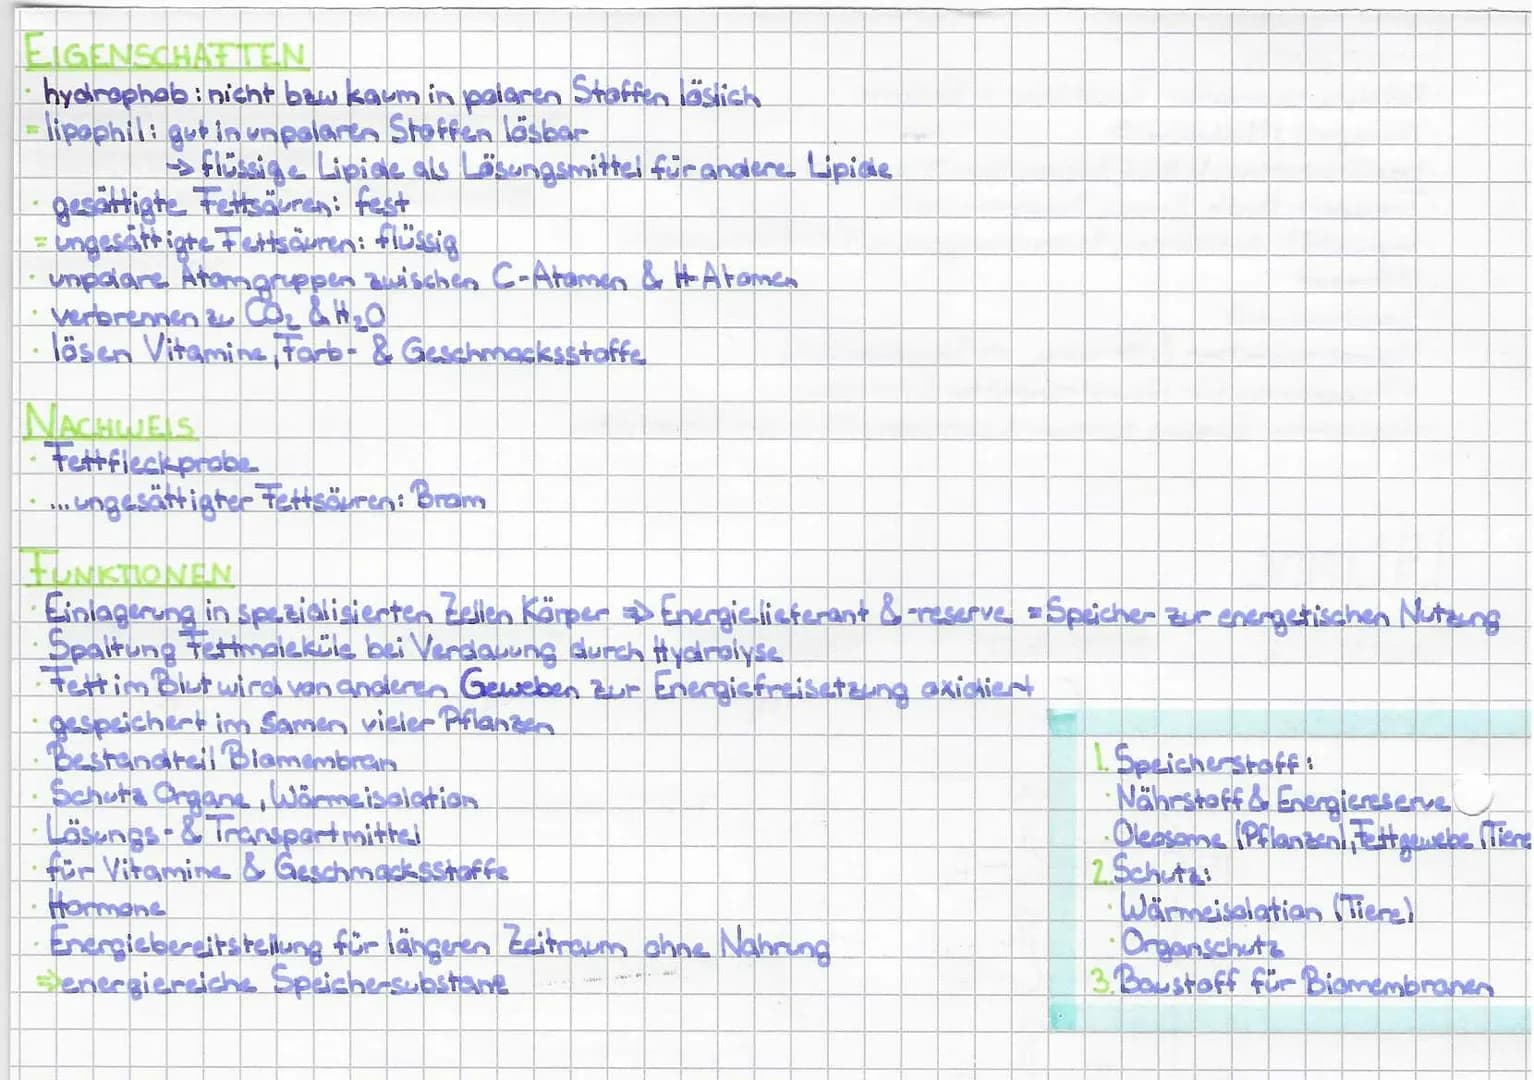 EIGENSCHAFTEN
· hydrophob: nicht bzw kaum in polaren Stoffen löslich
= lipophil: gut in unpolaren Stoffen lösbar
→ flüssige Lipide als Lösungsmittel für andere Lipide
· gesättigte Fettsäuren: fest
= ungesättigte Fettsäuren: flüssig
· unpolare Atomgruppen zwischen C-Atomen & H-Atomen
· verbrennen zu CO₂ & H₂O
· lösen Vitamine, Farb- & Geschmacksstoffe
NACHWEIS
· Fettfleckprobe
· ... ungesättigter Fettsäuren: Brom
FUNKTIONEN
· Einlagerung in spezialisierten Zellen Körper ⇒ Energielieferant & -reserve = Speicher zur energetischen Nutzung
· Spaltung Fettmoleküle bei Verdauung durch Hydrolyse
· Fett im Blut wird von anderen Geweben zur Energiefreisetzung oxidiert
· gespeichert im Samen vieler Pflanzen
· Bestandteil Biomembran
· Schutz Organe, Wärmeisolation
· Lösungs- & Transportmittel
· für Vitamine & Geschmacksstoffe
· Hormone
· Energiebereitstellung für längeren Zeitraum ohne Nahrung
⇒ energiereiche Speichersubstanz
1. Speicherstoff:
· Nährstoff & Energiereserve
· Oleosome (Pflanzen), Fettgewebe (Tiere
2. Schutz:
· Wärmeisolation (Tiere)
· Organschutz
3. Baustoff für Biomembranen